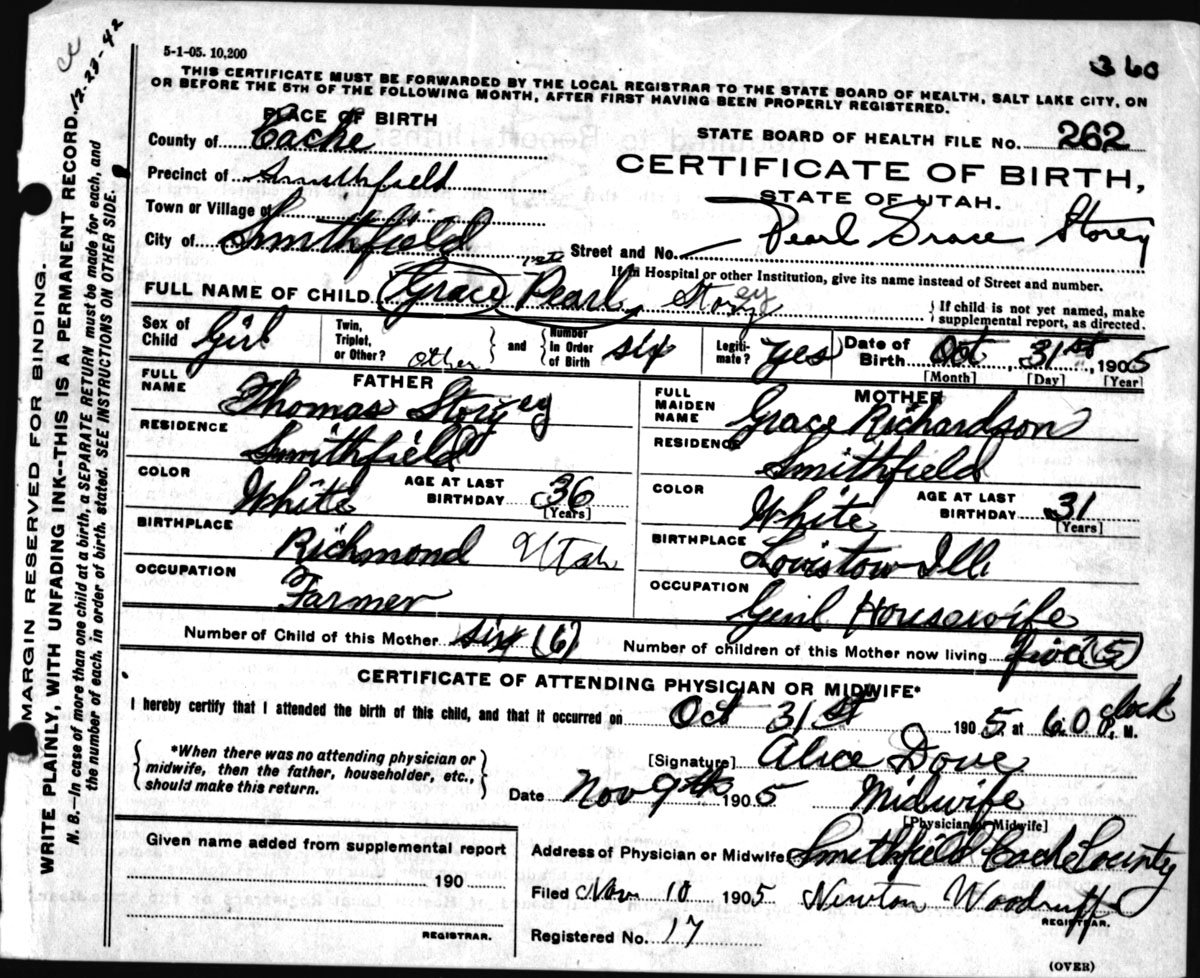 5-1-05. 10,200
360
THIS CERTIFICATE MUST BE FORWARDED BY THE LOCAL REGISTRAR TO THE STATE BOARD OF HEALTH, SALT LAKE CITY, ON
OR BEFORE THE 5TH OF THE FOLLOWING MONTH, AFTER FIRST HAVING BEEN PROPERLY REGISTERED.
PLACE OF BIRTH
County of Cache
Precinct of Smithfield
Town or Village of
City of Smithfield
STATE BOARD OF HEALTH FILE No. 262
CERTIFICATE OF BIRTH,
STATE OF UTAH.
Pearl Grace Storey
Street and No.
If in Hospital or other Institution, give its name instead of Street and number.
FULL NAME OF CHILD Grace Pearl Storey
If child is not yet named, make
supplemental report, as directed.
Sex of Child Girl
Twin, Triplet, or Other? other and Number in Order of Birth six
Legiti-mate? yes
Date of Birth Oct 31st, 1905
[Month] [Day] [Year]
FATHER
FULL NAME Thomas Storey
RESIDENCE Smithfield
COLOR White AGE AT LAST BIRTHDAY 36
[Years]
BIRTHPLACE Richmond Utah
OCCUPATION Farmer
MOTHER
FULL MAIDEN NAME Grace Richardson
RESIDENCE Smithfield
COLOR White AGE AT LAST BIRTHDAY 31
[Years]
BIRTHPLACE Louistow Ill
OCCUPATION Housewife
Number of Child of this Mother six (6) Number of children of this Mother now living five (5)
CERTIFICATE OF ATTENDING PHYSICIAN OR MIDWIFE*
I hereby certify that I attended the birth of this child, and that it occurred on Oct 31st 1905. at 6.0 clock P. M.
*When there was no attending physician or
midwife, then the father, householder, etc.,
should make this return.
[Signature] Alice Dove
Date Nov 9th 1905 Midwife
[Physician or Midwife]
Given name added from supplemental report
190
REGISTRAR.
Address of Physician or Midwife Smithfield Cache County
Filed Nov 10 1905 Newton Woodruff
REGISTRAR.
Registered No. 17
(OVER)
MARGIN RESERVED FOR BINDING.
WRITE PLAINLY, WITH UNFADING INK--THIS IS A PERMANENT RECORD.
N. B.—In case of more than one child at a birth, a SEPARATE RETURN must be made for each, and
the number of each, in order of birth, stated. SEE INSTRUCTIONS ON OTHER SIDE.